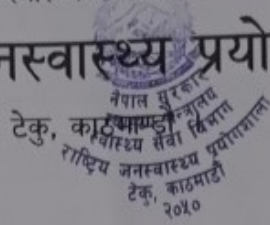 नस्वास्थ्य प्रयो
टेकु, काठमाण्डौ
नेपाल सरकार
स्वास्थ्य सेवा विभाग
राष्ट्रिय जनस्वास्थ्य प्रयोगशाला
टेकु, काठमाडौं
२०५०